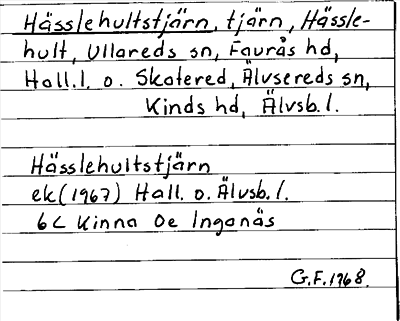 Hässlehultstjärn, tjärn, Hässle-
hult, Ullareds sn, Faurås hd,
Hall.l. o. Skatered, Älvsereds sn,
Kinds hd, Älvsb.l.
Hässlehultstjärn
ek(1967) Hall. o. Älvsb.l.
6C Kinna 0e Inganäs
G.F.1968.